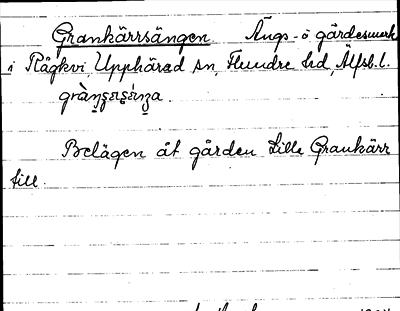 Grankärrsängen Ängs- o gärdesmark
i Rågkvi, Upphärad sn, Flundre hd, Älfsb. l.
Belägen åt gården Lilla Grankärr
till.